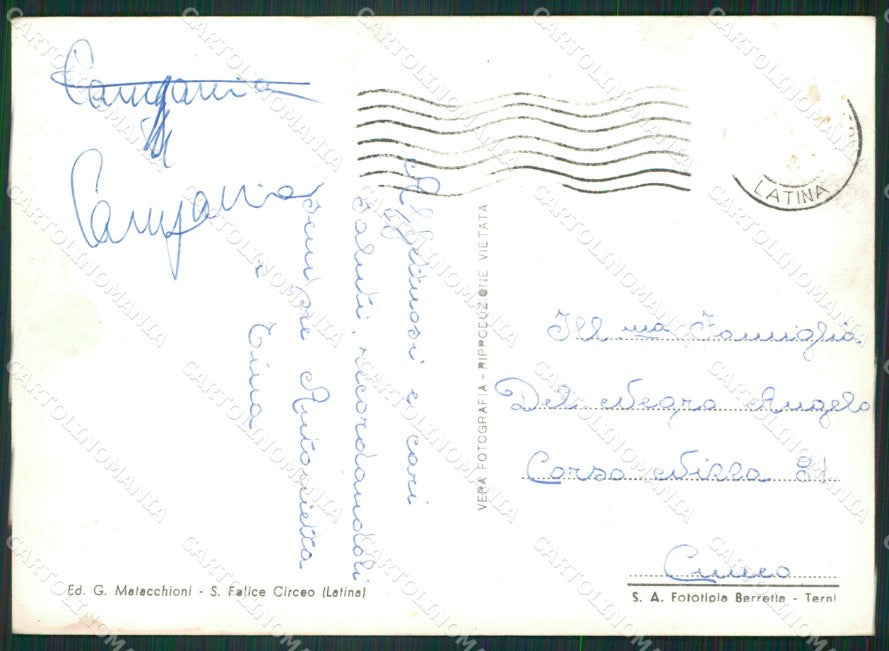 Campania
Campania
Affettuosi e cari
saluti, ricordandoli
sempre Antonietta
e Tina
VERA FOTOGRAFIA - RIPRODUZIONE VIETATA
LATINA
Ill ma Famiglia
Del Negro Angelo
Corso Nizza 87
Cuneo
Ed. G. Matacchioni - S. Felice Circeo (Latina)
S. A. Fototipia Berretta - Terni
CARTOLINOMANIA